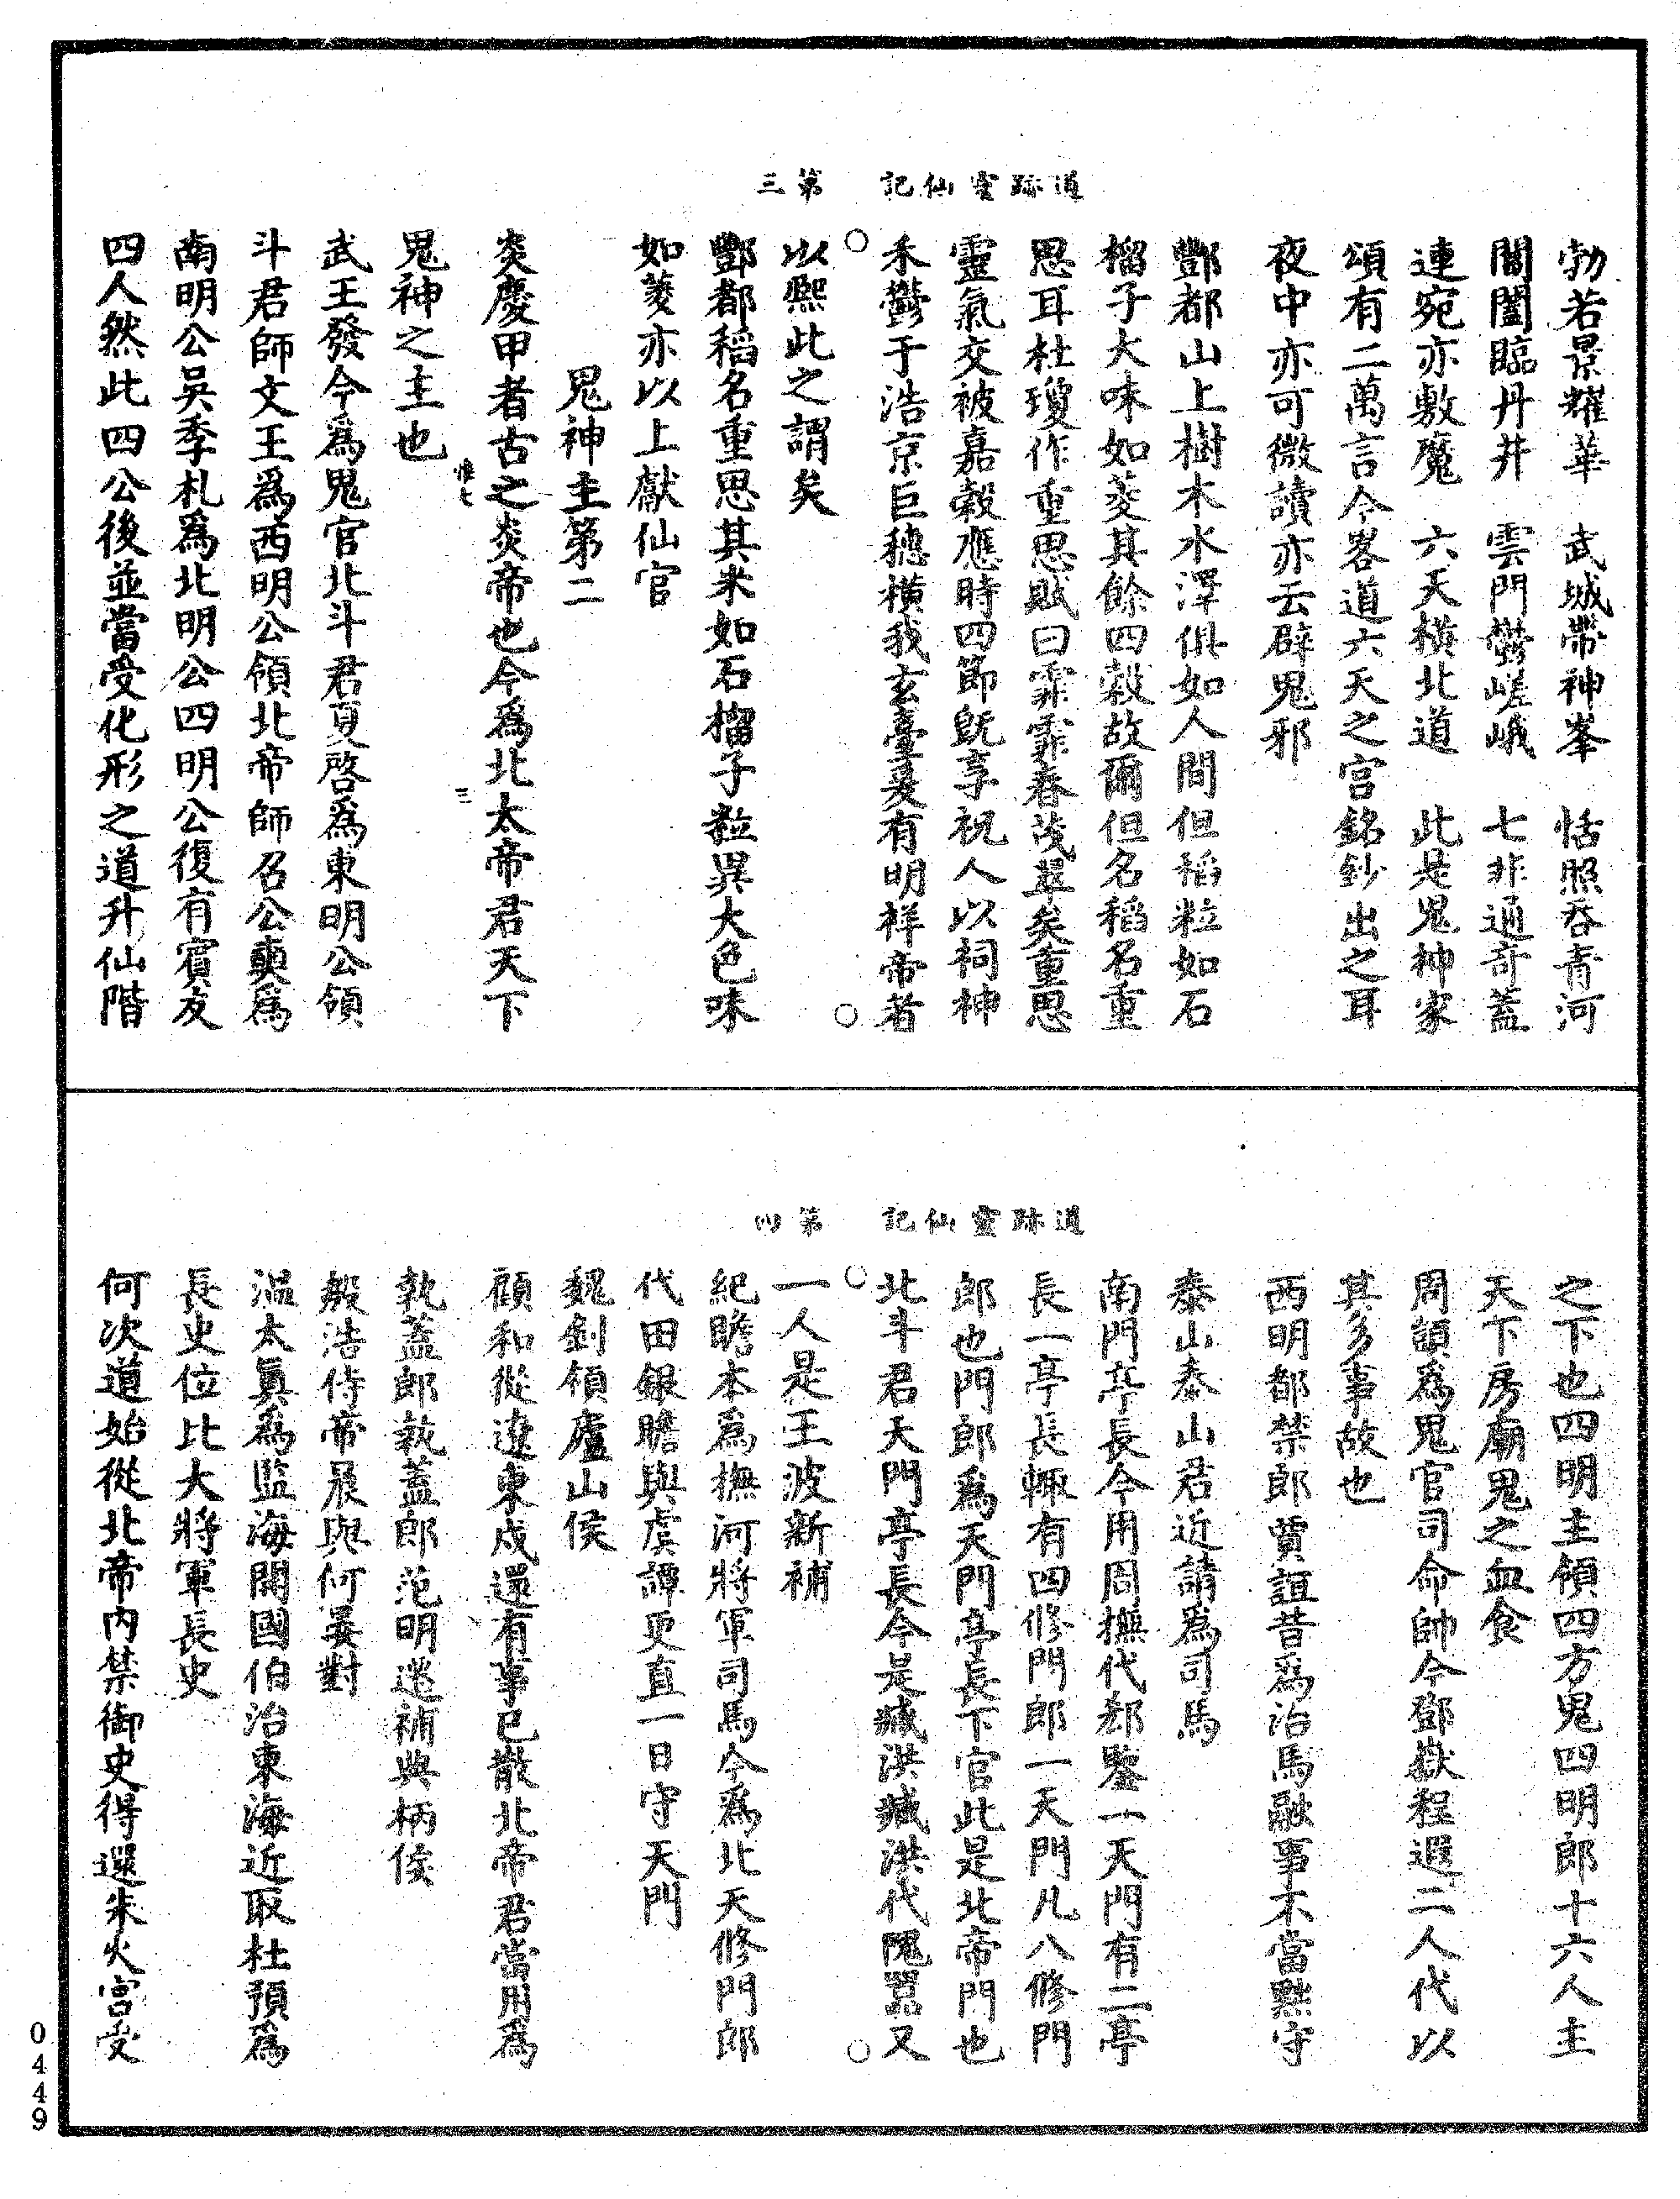 道跡靈仙記　第三
勃若景耀華　武城帶神峯　恬照吞青河
閶闔臨丹井　雲門鬱嵯峨　七非通奇蓋
連宛亦敷魔　六天橫北道　此是鬼神家
頌有二萬言今畧道六天之宫銘鈔出之耳
夜中亦可微讀亦云辟鬼邪
酆都山上樹木水澤俱如人間但稻粒如石
榴子大味如菱其餘四穀故爾但名稻名重
思耳杜瓊作重思賦曰霏霏春茂翠矣重思
靈氣交被嘉穀應時四節既享祝人以祠神
禾鬱于浩京巨穗橫我玄臺爰有明祥帝者
以熙此之謂矣
酆都稻名重思其米如石榴子粒異大色味
如菱亦以上獻仙官
鬼神主第二
炎慶甲者古之炎帝也今爲北太帝君天下
惟七　三
鬼神之主也
武王發今爲鬼官北斗君夏啓爲東明公領
斗君師文王爲西明公領北帝師召公奭爲
南明公吳季札爲北明公四明公復有賓友
四人然此四公後並當受化形之道升仙階
道跡靈仙記　第四
之下也四明主領四方鬼四明郎十六人主
天下房廟鬼之血食
周顗爲鬼官司命帥今鄧嶽程遐二人代以
其多事故也
西明都禁郎賈誼昔爲治馬融事不當黜守
泰山泰山君近請爲司馬
南門亭長今用周撫代郄鑒一天門有二亭
長一亭長輒有四修門郎一天門凡八修門
郎也門郎爲天門亭長下官此是北帝門也
北斗君天門亭長今是臧洪臧洪代隗囂又
一人是王波新補
紀瞻本爲撫河將軍司馬今爲北天修門郎
代田銀瞻與虞譚更直一日守天門
魏釗領廬山侯
顧和從遼東戍還有事已散北帝君當用爲
執蓋郎執蓋郎范明遷補典柄侯
殷浩侍帝晨與何晏對
溫太眞爲監海開國伯治東海近取杜預爲
長史位比大將軍長史
何次道始從北帝内禁御史得還朱火宮受
0449